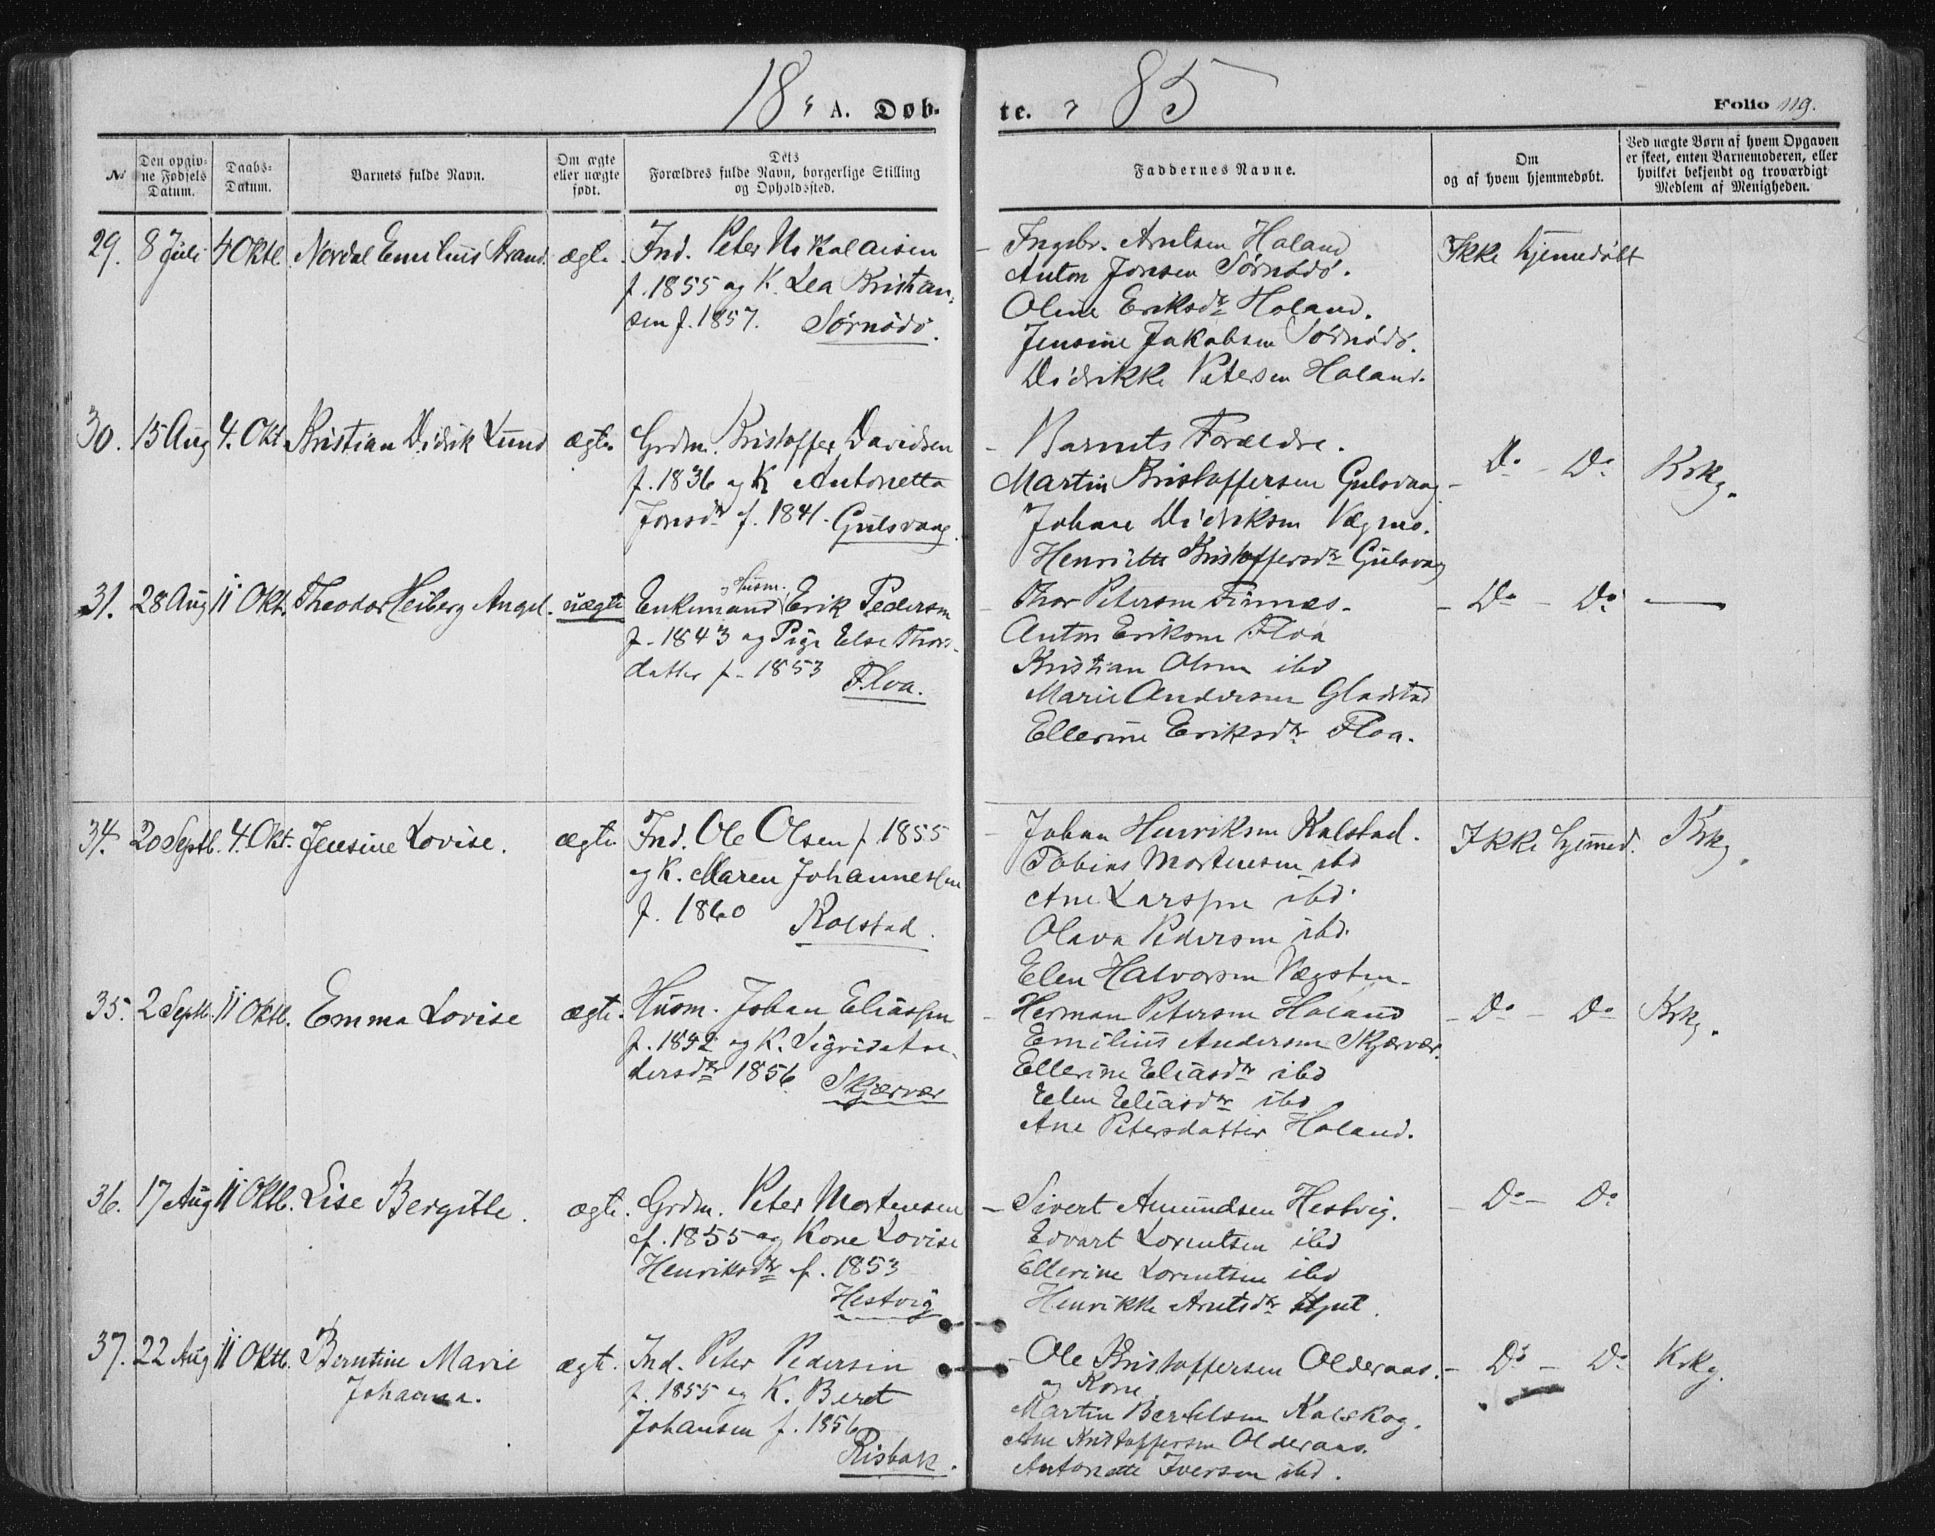 18 A. Døb-
te. 85 Folio 119.
No Den opgivne Fødsels Datum. Daabs-Datum. Barnets fulde Navn. Om ægte eller uægte født. Dets Forældres fulde Navn, borgerlige Stilling og Opholdssted.
Faddernes Navne. Om og af hvem hjemmedøbt. Ved uægte Børn af hvem Opgaven er skeet, enten Barnemoderen, eller hvilket bekjendt og troværdigt Medlem af Menigheden.
29. 8 Juli 4 Oktb. Nordal Emilius Strand. ægte. Ind. Peter Nikolaisen
f. 1855 og K. Lea Kristian-
sen f. 1857. Sørnødø.
- Ingebr. Arntsen Holand Ikke hjemmedøbt
Anton Jonsen Sørnødø.
Oline Eriksdtr Holand.
Jensine Jakobsen Sørnødø.
Didrikke Petersen Holand.
30. 15 Aug 4. Okt. Kristian Didrik Lund ægte. Grdm. Kristoffer Davidsen
f. 1836 og K Antonetta
Jonsdtr f. 1841. Gulsvaag.
- Barnets Forældre. Do - Do Krkg.
Martin Kristoffersen Gulsvaag -
Johan Didriksen Vægmo.
Henriette Kristoffersdtr Gulsvaag
31. 28 Aug 11 Okt. Theodor Heiberg Angel. uægte Enkemand og Husm. Erik Pedersen
f. 1843 og Pige Else Thors-
datter f. 1853 Floa.
- Thor Petersen Finnes - - Do - Do —
Anton Eriksen Floa
Kristian Olsen ibd
Marie Andersen Gladstad
Ellerine Eriksdtr Floa.
34. 20 Septb. 4. Okt. Jensine Lovise. ægte. Ind. Ole Olsen f. 1855
og K. Maren Johannessen
f. 1860 Kolstad.
- Johan Henriksen Kalstad. Ikke hjemmed. Krkg.
Tobias Mortensen ibd
Ane Larssen ibd.
Olava Pedersen ibd.
Elen Halvorsen Vægsten.
35. 2 Septb. 11 Oktb. Emma Lovise ægte. Husm. Johan Eliassen
f. 1852 og K. Sigrid An-
dersdtr 1856 Skjærvær
- Herman Petersen Holand - Do - Do Krkg.
Emilius Andersen Skjærvær.
Ellerine Eliasdtr ibd
Elen Eliasdtr ibd
Ane Petersdatter Holand.
36. 17 Aug 11 Oktb. Lise Bergitte. ægte. Grdm. Peter Mortensen
f. 1855 og Kone Lovise
Henriksdtr f. 1853
Hestvig
- Sivert Amundsen Hestvig. - Do - Do
Edvart Lorentsen ibd
Ellerine Lorentsen ibd
Henrikke Arntsdtr
37. 22 Aug 11 Oktb. Berntine Marie ægte. Ind. Peter Pedersen
Johanna. f. 1855 og K. Beret
Johansen f. 1856
Risbak.
- Ole Kristoffersen Olderaas. - Do - Do Krkg.
og Kone.
Martin Bertelsen Kalskog.
Ane Kristoffersen Olderaas.
Antonette Iversen ibd.